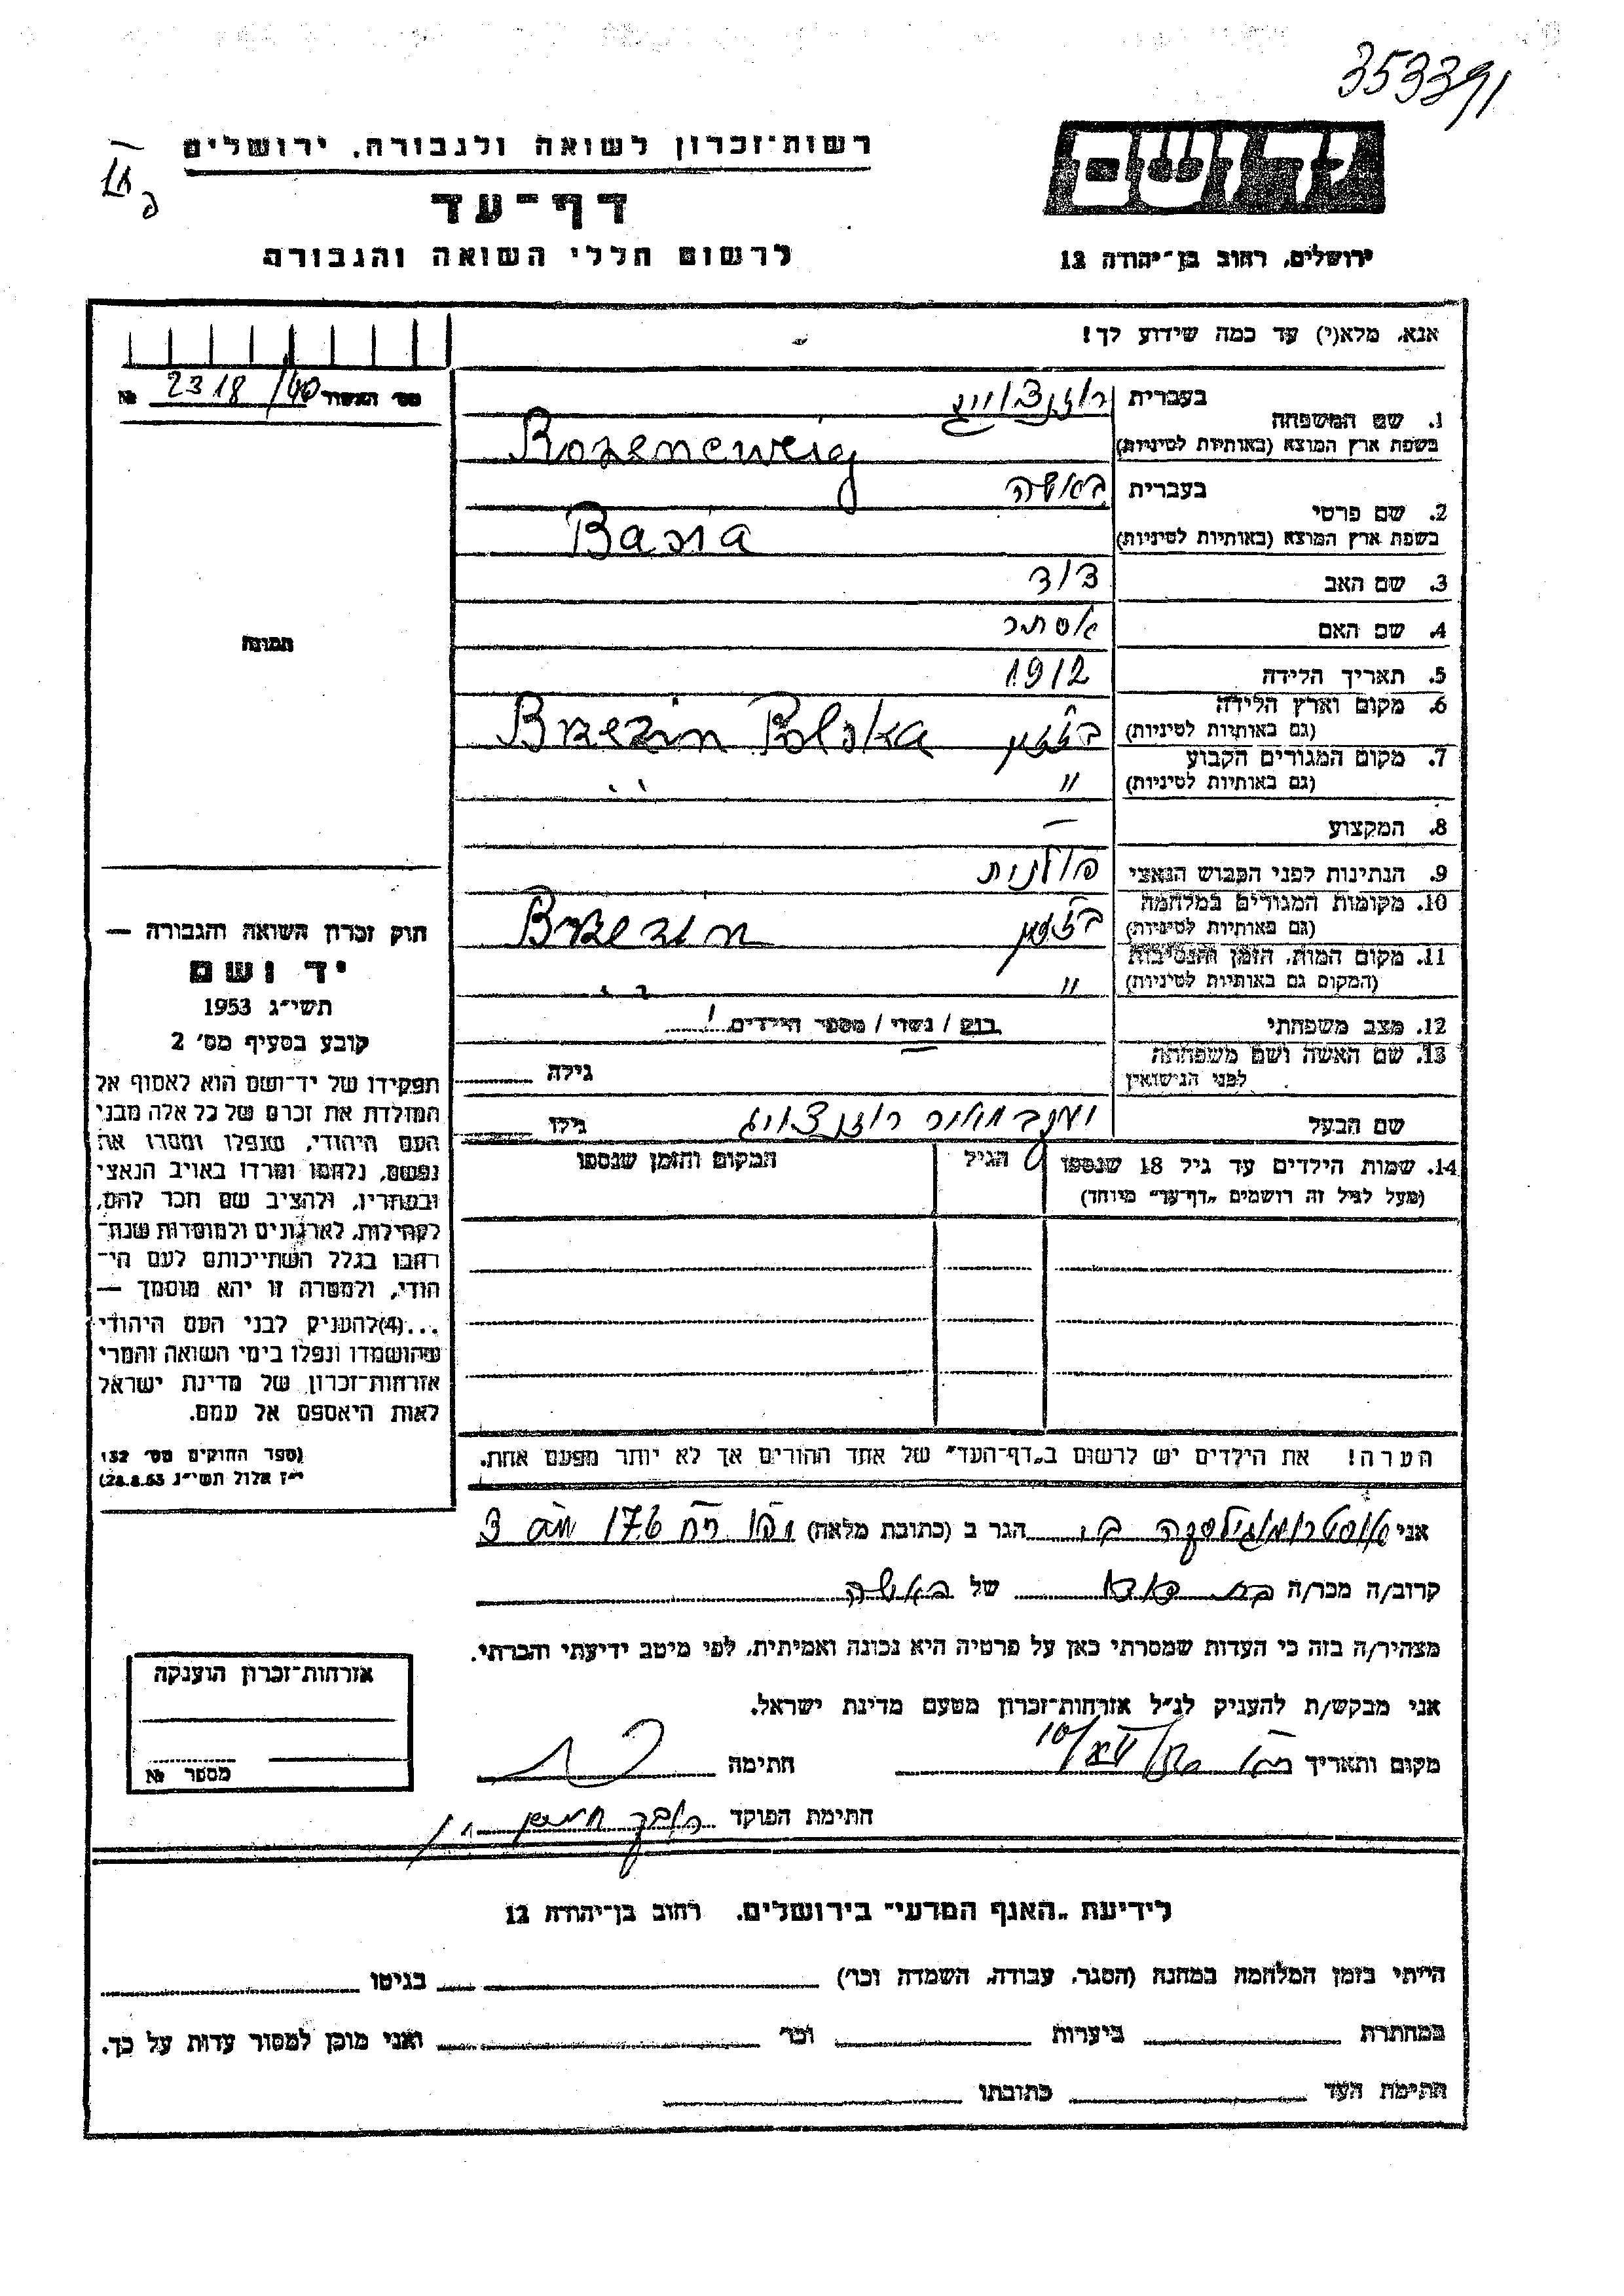 353391
רשות־זכרון לשואה ולגבורה, ירושלים
דף־עד
לרשום חללי השואה והגבורה
יד ושם
ירושלים, רחוב בן־יהודה 12
אנא, מלא(י) עד כמה שידוע לך!
מס׳ האשור 2318/40 №
תמונה
1. שם המשפחה
בעברית רוזנצוויג
בשפת ארץ המוצא (באותיות לטיניות) Rozencweig
2. שם פרטי
בעברית באשה
בשפת ארץ המוצא (באותיות לטיניות) Basia
3. שם האב דוד
4. שם האם אסתר
5. תאריך הלידה 1912
6. מקום וארץ הלידה
(גם באותיות לטיניות) Brzezin Polska
7. מקום המגורים הקבוע
(גם באותיות לטיניות) "
8. המקצוע —
9. הנתינות לפני הכבוש הנאצי פולנית
10. מקומות המגורים במלחמה
(גם באותיות לטיניות) Brzezin
11. מקום המות, הזמן והנסיבות
(המקום גם באותיות לטיניות) "
12. מצב משפחתי רוק / נשוי / מספר הילדים
13. שם האשה ושם משפחתה
לפני הנישואין — גילה
שם הבעל רוזנצוויג גילו
14. שמות הילדים עד גיל 18 שנספו
(מעל לגיל זה רושמים „דף־עד" מיוחד)
הגיל
המקום והזמן שנספו
הערה! את הילדים יש לרשום ב„דף־העד" של אחד ההורים אך לא יותר מפעם אחת.
חוק זכרון השואה והגבורה —
יד ושם
תשי״ג 1953
קובע בסעיף מס׳ 2
תפקידו של יד־ושם הוא לאסוף אל
המולדת את זכרם של כל אלה מבני
העם היהודי, שנפלו ומסרו את
נפשם, נלחמו ומרדו באויב הנאצי
ובעוזריו, ולהציב שם וזכר להם,
לקהילות, לארגונים ולמוסדות שנח־
רבו בגלל השתייכותם לעם הי־
הודי, ולמטרה זו יהא מוסמך —
...(4) להעניק לבני העם היהודי
שהושמדו ונפלו בימי השואה והמרי
אזרחות־זכרון של מדינת ישראל
לאות היאספם אל עמם.
(ספר החוקים מס׳ 132
י״ז אלול תשי״ג 28.8.53)
אני הגר ב (כתובת מלאה) 176
קרוב/ה מכר/ה של באשה
מצהיר/ה בזה כי העדות שמסרתי כאן על פרטיה היא נכונה ואמיתית, לפי מיטב ידיעתי והכרתי.
אני מבקש/ת להעניק לנ״ל אזרחות־זכרון מטעם מדינת ישראל.
מקום ותאריך חתימה
חתימת הפוקד
אזרחות־זכרון הוענקה
מספר №
לידיעת „האגף המדעי" בירושלים. רחוב בן־יהודה 12
הייתי בזמן המלחמה במחנה (הסגר, עבודה, השמדה וכו׳) בגיטו
במחתרת ביערות וכו׳ ואני מוכן למסור עדות על כך.
חתימת העד כתובתו